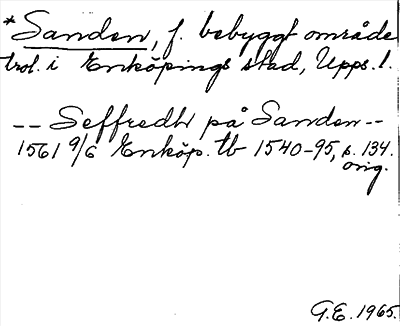 *Sanden, f. bebyggt område
trol. i Enköpings stad, Upps. l.
-- Seffredh på Sanden --
1561 9/6 Enköp. tb 1540-95, s. 134.
orig.
G.E. 1965.